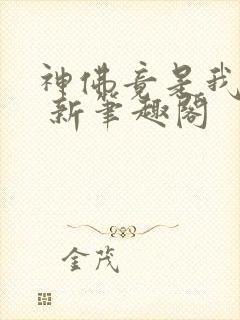 神佛竟是我
新笔趣阁
金茂